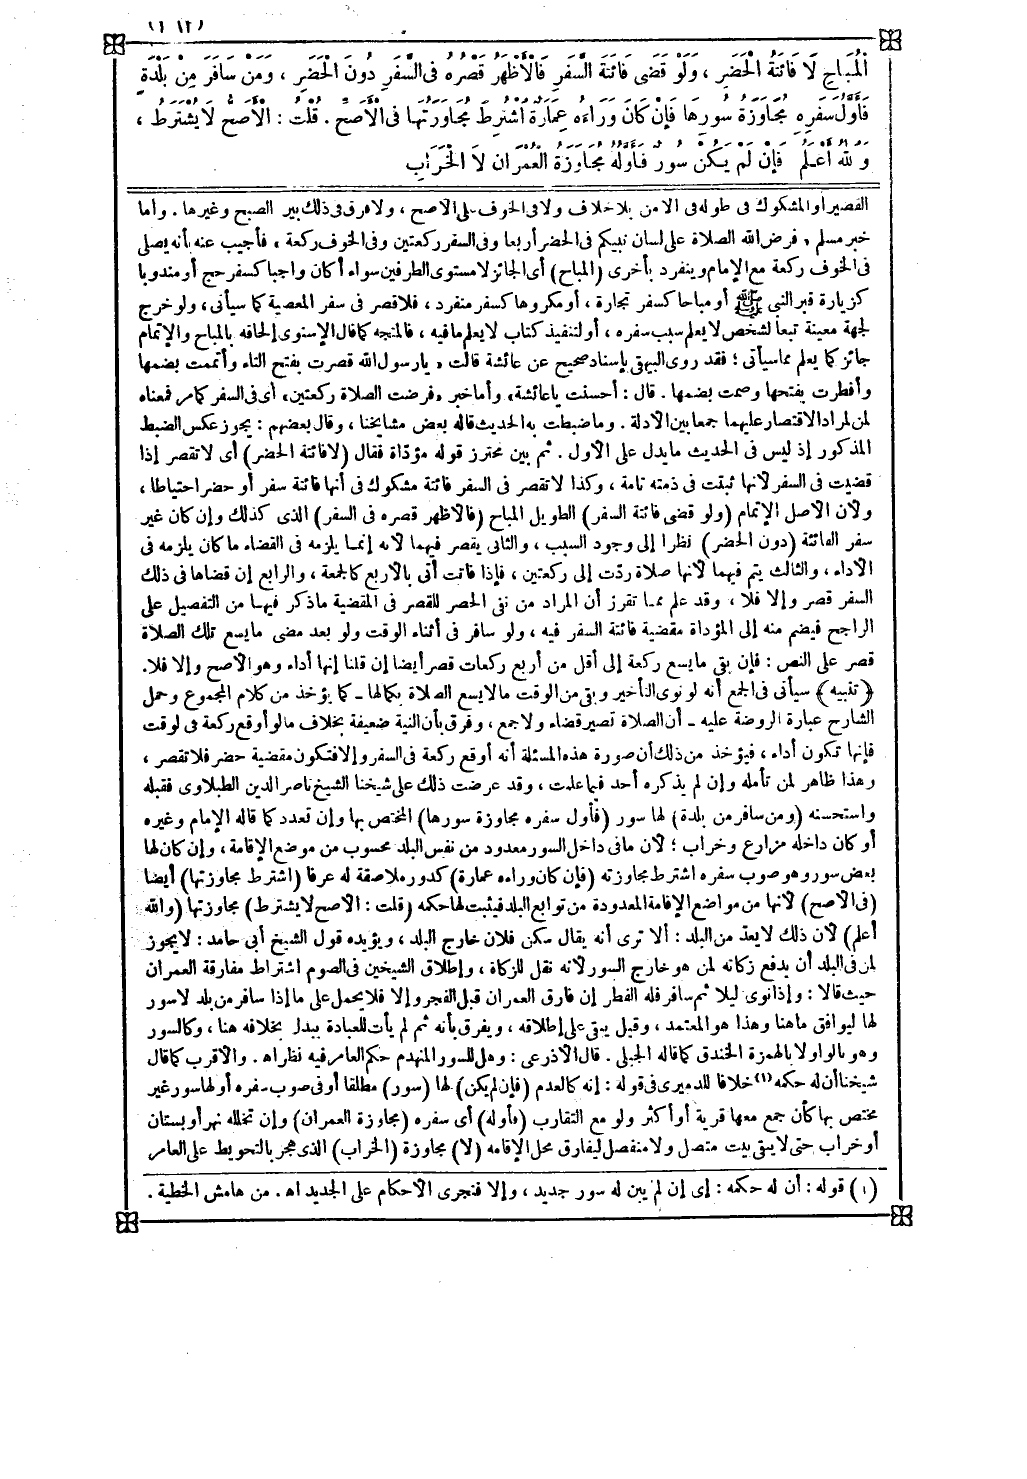 الْمُبَاحِ لَا فَائِتَةُ الْحَضَرِ ، وَلَوْ قَضَى فَائِتَةَ السَّفَرِ فَالْأَظْهَرُ قَصْرُهُ فِى السَّفَرِ دُونَ الْحَضَرِ ، وَمَنْ سَافَرَ مِنْ بَلْدَةٍ
فَأَوَّلُ سَفَرِهِ مُجَاوَزَةُ سُورِهَا فَإِنْ كَانَ وَرَاءَهُ عِمَارَةٌ اشْتُرِطَ مُجَاوَزَتُهَا فِى الْأَصَحِّ . قُلْتُ : الْأَصَحُّ لَا يُشْتَرَطُ ،
وَاللهُ أَعْلَمُ فَإِنْ لَمْ يَكُنْ سُورٌ فَأَوَّلُهُ مُجَاوَزَةُ الْعُمْرَانِ لَا الْخَرَابِ
القصير أو المشكوك فى طوله فى الأمن بلا خلاف ولا فى الخوف على الأصح ، ولا فرق فى ذلك بين الصبح وغيرها . وأما
خبر مسلم « فرض الله الصلاة على لسان نبيكم فى الحضر أربعا وفى السفر ركعتين وفى الخوف ركعة » فأجيب عنه بأنه يصلى
فى الخوف ركعة مع الإمام وينفرد بأخرى (المباح) أى الجائز لا مستوى الطرفين سواء أكان واجبا كسفر حج أو مندوبا
كزيارة قبر النبى ﷺ أو مباحا كسفر تجارة ، أو مكروها كسفر منفرد ، فلا قصر فى سفر المعصية كما سيأتى ، ولو خرج
لجهة معينة تبعا لشخص لا يعلم سبب سفره ، أو لتنفيذ كتاب لا يعلم ما فيه ، فالمتجه كما قال الإسنوى إلحاقه بالمباح والإتمام
جائز كما يعلم مما سيأتى ؛ فقد روى البيهقى بإسناد صحيح عن عائشة قالت « يا رسول الله قصرت بفتح التاء وأتممت بضمها
وأفطرت بفتحها وصمت بضمها . قال : أحسنت يا عائشة» وأما خبر «فرضت الصلاة ركعتين» أى فى السفر كما مر فمعناه
لمن أراد الاقتصار عليهما جمعا بين الأدلة . وما ضبطت به الحديث قاله بعض مشايخنا ، وقال بعضهم : يجوز عكس الضبط
المذكور إذ ليس فى الحديث ما يدل على الأول . ثم بين محترز قوله مؤدّاة فقال (لا فائتة الحضر) أى لا تقصر إذا
قضيت فى السفر لأنها ثبتت فى ذمته تامة ، وكذا لا تقصر فى السفر فائتة مشكوك فى أنها فائتة سفر أو حضر احتياطا ،
ولأن الأصل الإتمام (ولو قضى فائتة السفر) الطويل المباح (فالأظهر قصره فى السفر) الذى كذلك وإن كان غير
سفر الفائتة (دون الحضر) نظرا إلى وجود السبب ، والثانى يقصر فيهما لأنه إنما يلزمه فى القضاء ما كان يلزمه فى
الأداء ، والثالث يتم فيهما لأنها صلاة ردّت إلى ركعتين ، فإذا فاتت أتى بالأربع كالجمعة ، والرابع إن قضاها فى ذلك
السفر قصر وإلا فلا ، وقد علم مما تقرر أن المراد من نفى الحصر للقصر فى المقضية ما ذكر فيها من التفصيل على
الراجح فيضم منه إلى المؤداة مقضية فائتة السفر فيه ، ولو سافر فى أثناء الوقت ولو بعد مضى ما يسع تلك الصلاة
قصر على النص : فإن بقى ما يسع ركعة إلى أقل من أربع ركعات قصر أيضا إن قلنا إنها أداء وهو الأصح وإلا فلا.
﴿ تنبيه ﴾ سيأتى فى الجمع أنه لو نوى التأخير وبقى من الوقت ما لا يسع الصلاة بكمالها ــ كما يؤخذ من كلام المجموع وحمل
الشارح عبارة الروضة عليه ــ أن الصلاة تصير قضاء ولا جمع ، وفرق بأن النية ضعيفة بخلاف ما لو أوقع ركعة فى لوقت
فإنها تكون أداء ، فيؤخذ من ذلك أن صورة هذه المسئلة أنه أوقع ركعة فى السفر وإلا فتكون مقضية حضر فلا تقصر ،
وهذا ظاهر لمن تأمله وإن لم يذكره أحد فيما علمت ، وقد عرضت ذلك على شيخنا الشيخ ناصر الدين الطبلاوى فقبله
واستحسنه (ومن سافر من بلدة) لها سور (فأول سفره مجاوزة سورها) المختص بها وإن تعدد كما قاله الإمام وغيره
أو كان داخله مزارع وخراب ؛ لأن ما فى داخل السور معدود من نفس البلد محسوب من موضع الإقامة ، وإن كان لها
بعض سور وهو صوب سفره اشترط مجاوزته (فإن كان وراءه عمارة) كدور ملاصقة له عرفا (اشترط مجاوزتها) أيضا
(فى الأصح) لأنها من مواضع الإقامة المعدودة من توابع البلد فيثبت لها حكمه (قلت : الأصح لا يشترط) مجاوزتها (والله
أعلم) لأن ذلك لا يعدّ من البلد : ألا ترى أنه يقال سكن فلان خارج البلد ، ويؤيده قول الشيخ أبى حامد : لا يجوز
لمن فى البلد أن يدفع زكاته لمن هو خارج السور لأنه نقل للزكاة ، وإطلاق الشيخين فى الصوم اشتراط مفارقة العمران
حيث قالا : وإذا نوى ليلا ثم سافر فله الفطر إن فارق العمران قبل الفجر وإلا فلا يحمل على ما إذا سافر من بلد لا سور
لها ليوافق ما هنا وهذا هو المعتمد ، وقيل يبقى على إطلاقه ، ويفرق بأنه ثم لم يأت للعبادة ببدل بخلافه هنا ، وكالسور
وهو بالواو لا بالهمزة الخندق كما قاله الجيلى . قال الأذرعى : وهل للسور المنهدم حكم العامر فيه نظر اه . والأقرب كما قال
شيخنا أن له حكمه (١) خلافا للدميرى فى قوله : إنه كالعدم (فإن لم يكن) لها (سور) مطلقا أو فى صوب سفره أو لها سور غير
مختص بها كأن جمع معها قرية أو أكثر ولو مع التقارب (فأوله) أى سفره (مجاوزة العمران) وإن تخلله نهر أو بستان
أو خراب حتى لا يبقى بيت متصل ولا منفصل ليفارق محل الإقامة (لا) مجاوزة (الخراب) الذى هجر بالتحويط على العامر
(١) قوله : أن له حكمه : إى إن لم يبن له سور جديد ، وإلا فتجرى الأحكام على الجديد اه . من هامش الخطية .